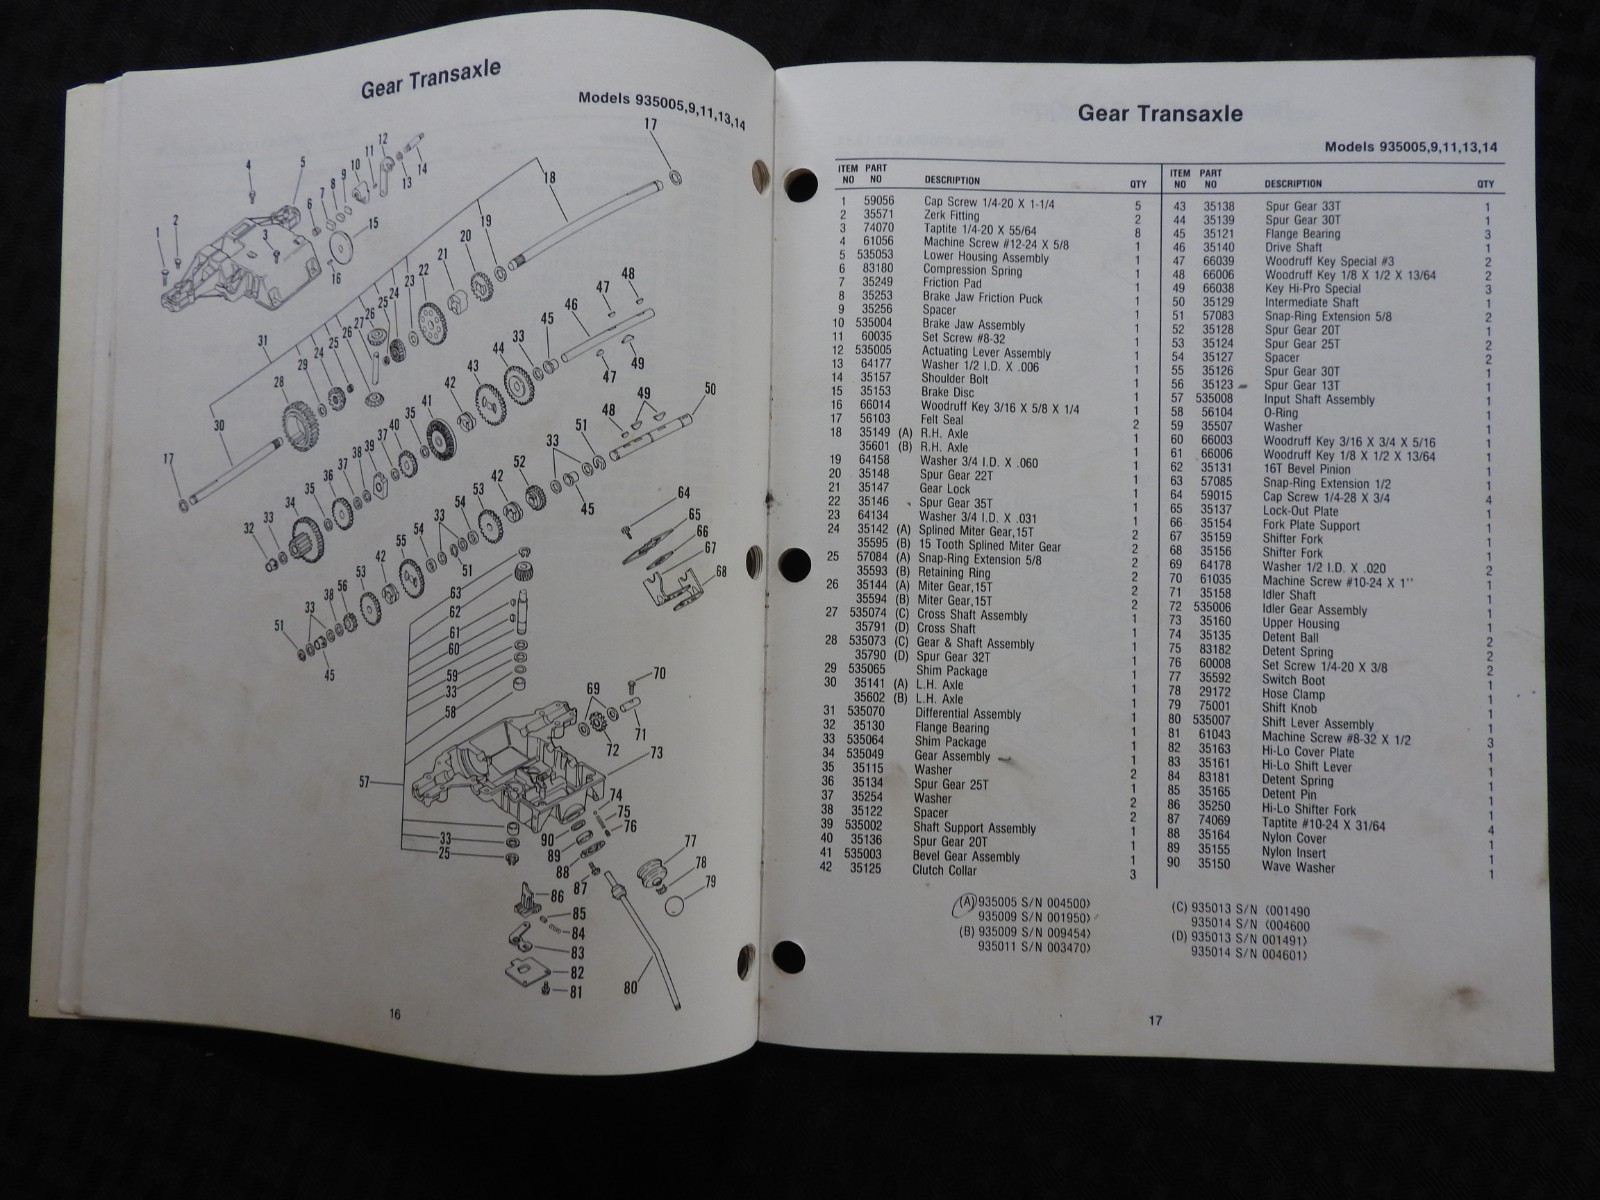 Gear Transaxle
Models 935005,9,11,13,14
16
Gear Transaxle
Models 935005,9,11,13,14
ITEM NO PART NO DESCRIPTION QTY
1 59056 Cap Screw 1/4-20 X 1-1/4 5
2 35571 Zerk Fitting 2
3 74070 Taptite 1/4-20 X 55/64 8
4 61056 Machine Screw #12-24 X 5/8 1
5 535053 Lower Housing Assembly 1
6 83180 Compression Spring 1
7 35249 Friction Pad 1
8 35253 Brake Jaw Friction Puck 1
9 35256 Spacer 1
10 535004 Brake Jaw Assembly 1
11 60035 Set Screw #8-32 1
12 535005 Actuating Lever Assembly 1
13 64177 Washer 1/2 I.D. X .006 1
14 35157 Shoulder Bolt 1
15 35153 Brake Disc 1
16 66014 Woodruff Key 3/16 X 5/8 X 1/4 1
17 56103 Felt Seal 2
18 35149 (A) R.H. Axle 1
35601 (B) R.H. Axle 1
19 64158 Washer 3/4 I.D. X .060 1
20 35148 Spur Gear 22T 1
21 35147 Gear Lock 1
22 35146 Spur Gear 35T 1
23 64134 Washer 3/4 I.D. X .031 1
24 35142 (A) Splined Miter Gear,15T 2
35595 (B) 15 Tooth Splined Miter Gear 2
25 57084 (A) Snap-Ring Extension 5/8 2
35593 (B) Retaining Ring 2
26 35144 (A) Miter Gear,15T 2
35594 (B) Miter Gear,15T 2
27 535074 (C) Cross Shaft Assembly 1
35791 (D) Cross Shaft 1
28 535073 (C) Gear & Shaft Assembly 1
35790 (D) Spur Gear 32T 1
29 535065 Shim Package 1
30 35141 (A) L.H. Axle 1
35602 (B) L.H. Axle 1
31 535070 Differential Assembly 1
32 35130 Flange Bearing 1
33 535064 Shim Package 1
34 535049 Gear Assembly 1
35 35115 Washer 2
36 35134 Spur Gear 25T 1
37 35254 Washer 2
38 35122 Spacer 2
39 535002 Shaft Support Assembly 1
40 35136 Spur Gear 20T 1
41 535003 Bevel Gear Assembly 1
42 35125 Clutch Collar 3
(A) 935005 S/N 004500〉
935009 S/N 001950〉
(B) 935009 S/N 009454〉
935011 S/N 003470〉
ITEM NO PART NO DESCRIPTION QTY
43 35138 Spur Gear 33T 1
44 35139 Spur Gear 30T 1
45 35121 Flange Bearing 3
46 35140 Drive Shaft 1
47 66039 Woodruff Key Special #3 2
48 66006 Woodruff Key 1/8 X 1/2 X 13/64 2
49 66038 Key Hi-Pro Special 3
50 35129 Intermediate Shaft 1
51 57083 Snap-Ring Extension 5/8 2
52 35128 Spur Gear 20T 1
53 35124 Spur Gear 25T 2
54 35127 Spacer 2
55 35126 Spur Gear 30T 1
56 35123 Spur Gear 13T 1
57 535008 Input Shaft Assembly 1
58 56104 O-Ring 1
59 35507 Washer 1
60 66003 Woodruff Key 3/16 X 3/4 X 5/16 1
61 66006 Woodruff Key 1/8 X 1/2 X 13/64 1
62 35131 16T Bevel Pinion 1
63 57085 Snap-Ring Extension 1/2 1
64 59015 Cap Screw 1/4-28 X 3/4 4
65 35137 Lock-Out Plate 1
66 35154 Fork Plate Support 1
67 35159 Shifter Fork 1
68 35156 Shifter Fork 1
69 64178 Washer 1/2 I.D. X .020 2
70 61035 Machine Screw #10-24 X 1" 1
71 35158 Idler Shaft 1
72 535006 Idler Gear Assembly 1
73 35160 Upper Housing 1
74 35135 Detent Ball 2
75 83182 Detent Spring 2
76 60008 Set Screw 1/4-20 X 3/8 2
77 35592 Switch Boot 1
78 29172 Hose Clamp 1
79 75001 Shift Knob 1
80 535007 Shift Lever Assembly 1
81 61043 Machine Screw #8-32 X 1/2 3
82 35163 Hi-Lo Cover Plate 1
83 35161 Hi-Lo Shift Lever 1
84 83181 Detent Spring 1
85 35165 Detent Pin 1
86 35250 Hi-Lo Shifter Fork 1
87 74069 Taptite #10-24 X 31/64 4
88 35164 Nylon Cover 1
89 35155 Nylon Insert 1
90 35150 Wave Washer 1
(C) 935013 S/N 〈001490
935014 S/N 〈004600
(D) 935013 S/N 001491〉
935014 S/N 004601〉
17